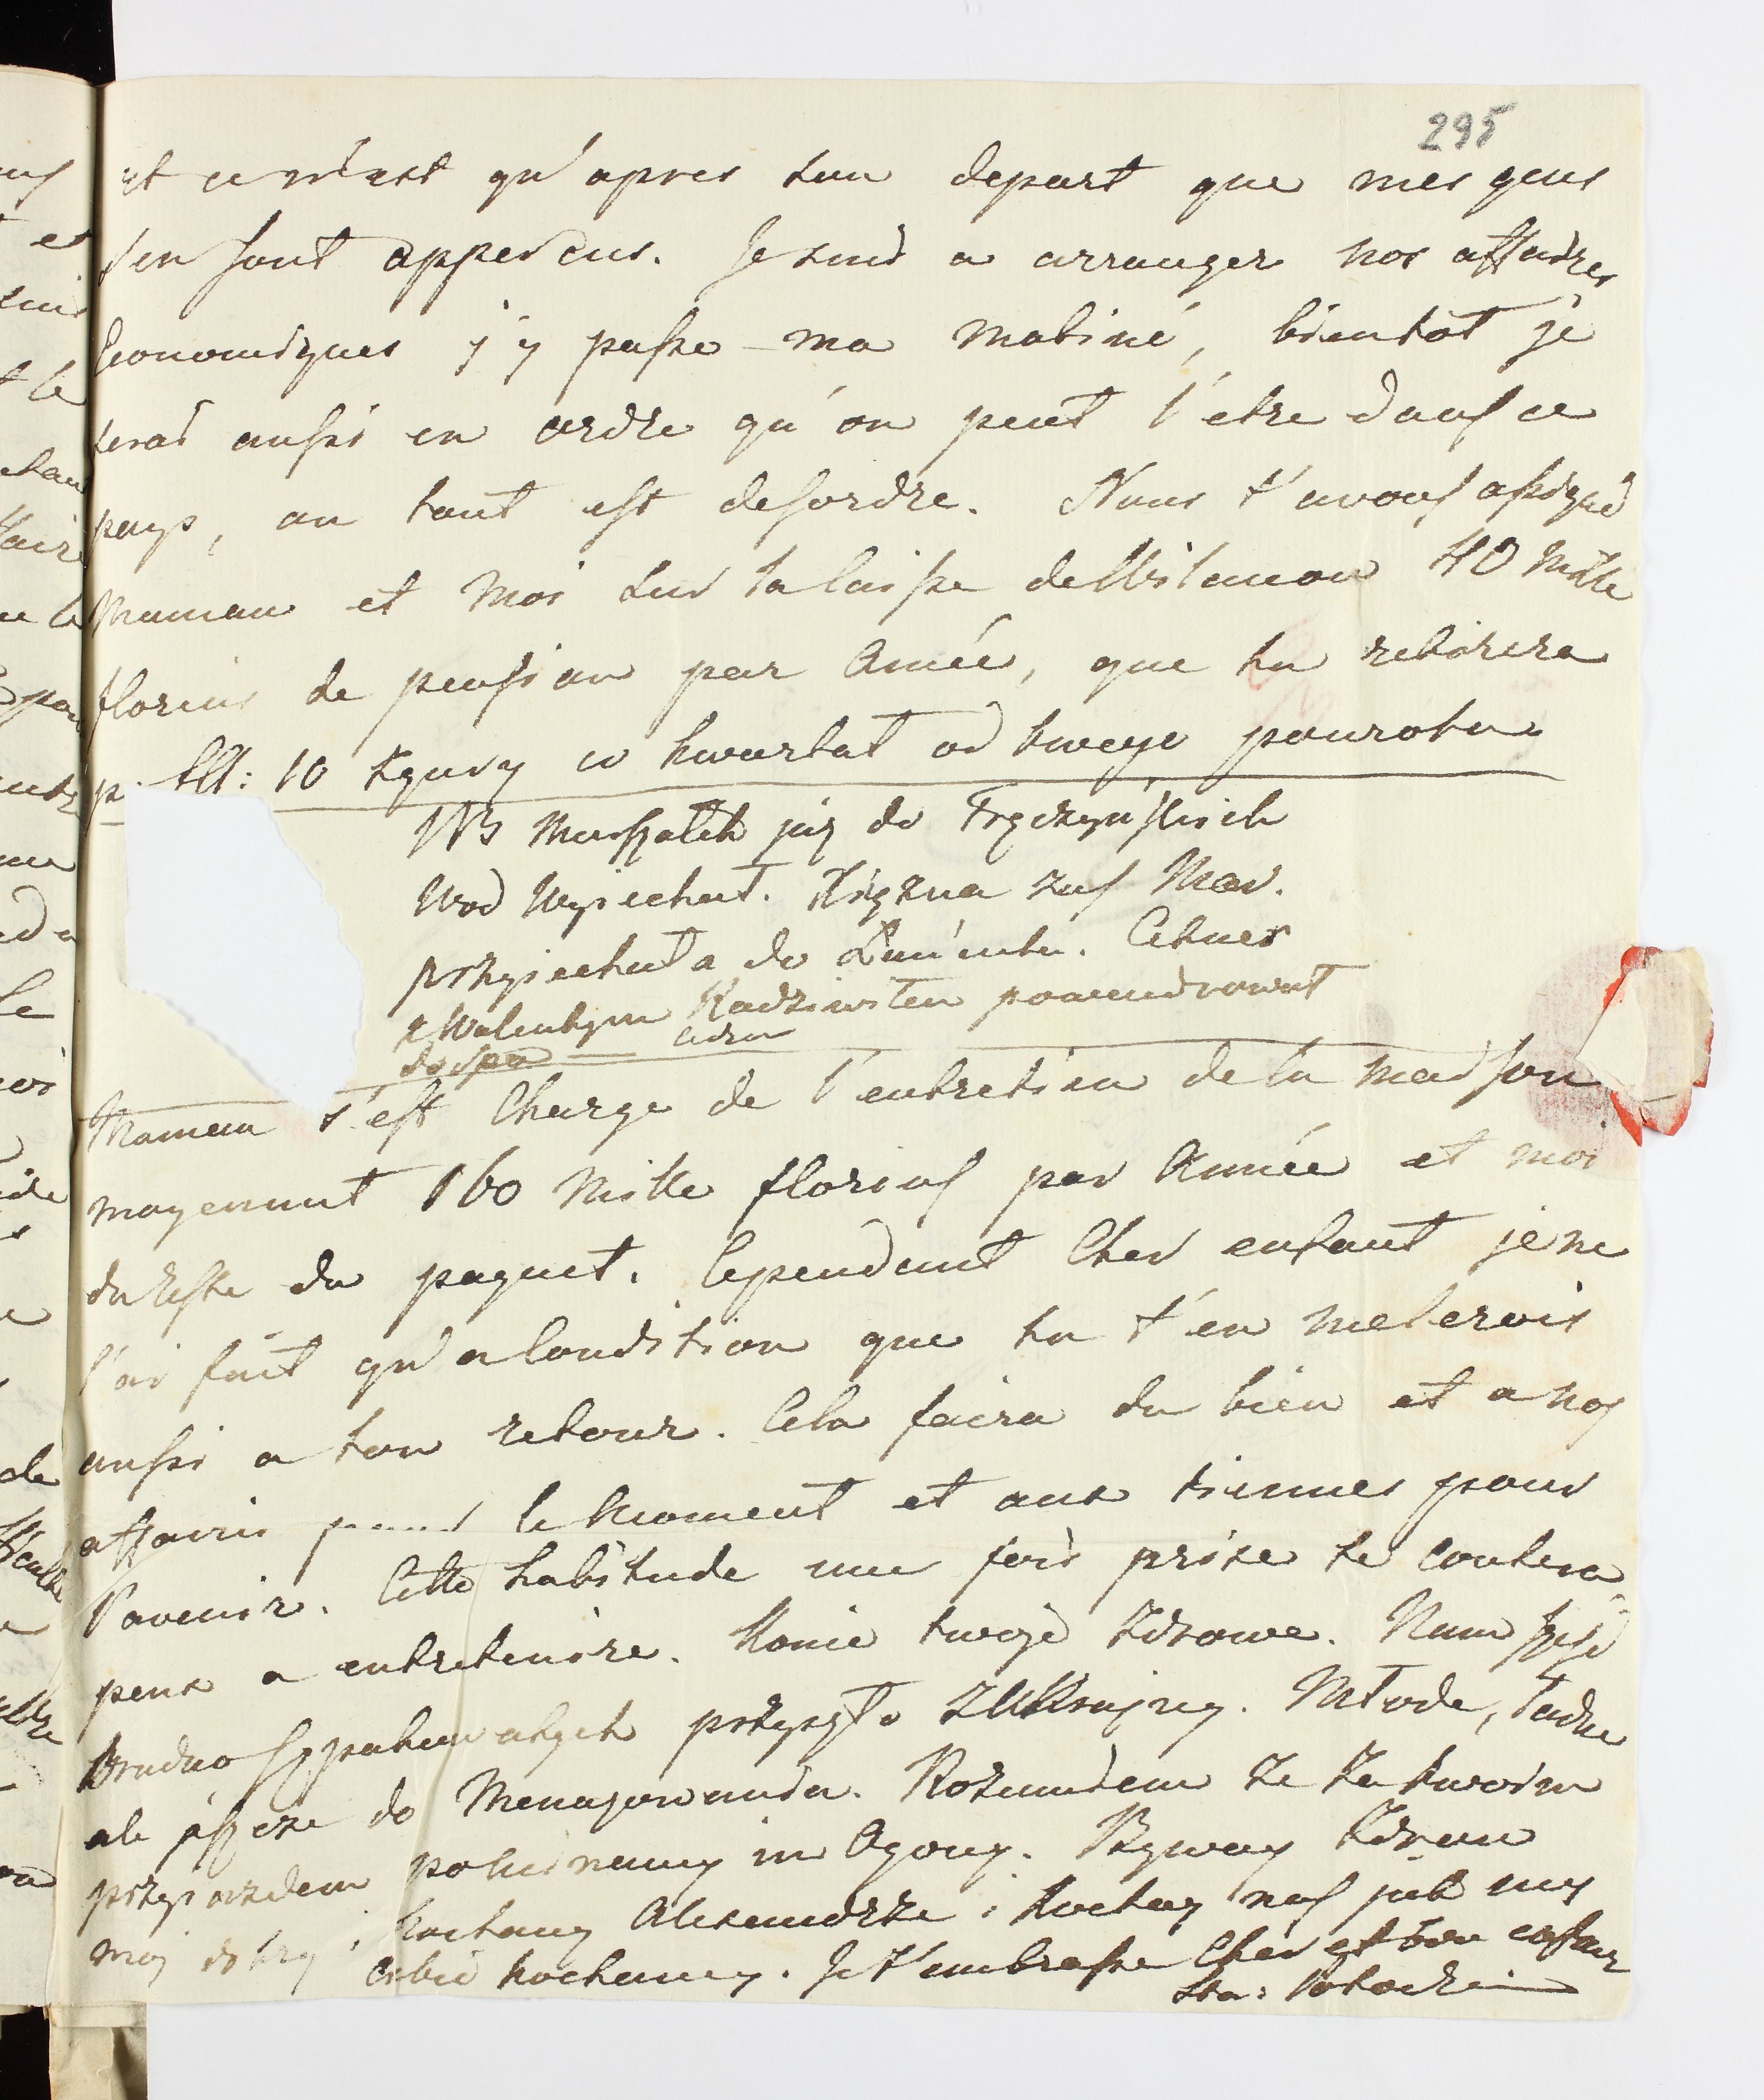 295
et ce n'est qu'apres ton depart que mes gens
s'en sont appercus. Je suis a arranger nos affaires
Economiques j'y passe ma matiné, bientot je
serai aussi en ordre qu'on peut l'etre dans ce
pays, ou tout est desordre. Nous t'avons assigné
Maman et Moi sur la Caisse de Wilanow 40 Mille
florins de pension par Année, que tu retirera
p. 10 tysięcy co kwartał od twego powrotu
NB Marszałek już do Tręczyńskich
Wod Wyiechał. Xiężna zaś Mar.
przyiechała do Łańcuta. Cetner
z Walentym Radziwiłłem powendrował
do Spa
Maman s'est Charge de l'entretien de la maison
moyennant 160 Mille florins par Année et moi
du reste du paquet. Cependant Cher enfant je ne
l'ai fait qu'a Condition que tu t'en meleroit
aussi a ton retour. Cela faira du bien et a nos
affaires pour le Moment et aux tiennes pour
l'avenir. Cette habitude une fois prise te coutera
peux a entretenire. Konie twoje zdrowe. Nam sześć
przyszło z Ukrainy. Młode, ładne
ale jeszcze do Menażowania. Rozumiem że za twoim
przyiazdem im Ogony. Byway zdrow
moj dobry i kochany Alexandrze i kochay nas jak my
Ciebie kochamy. Je t'embrasse Cher et bon enfant
Sta: Potocki